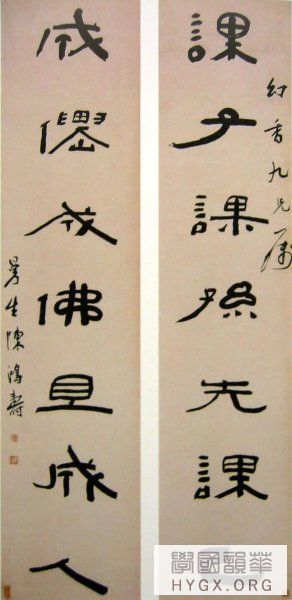 課子課孫先課
香九兄屬
成僊成佛且成人
曼生陳鴻壽
學國韻華
HYGX.ORG